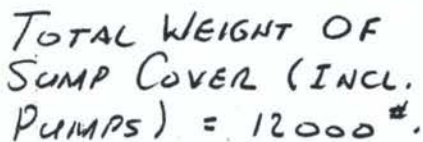 TOTAL WEIGHT OF
SUMP COVER (INCL.
PUMPS) = 12000#.